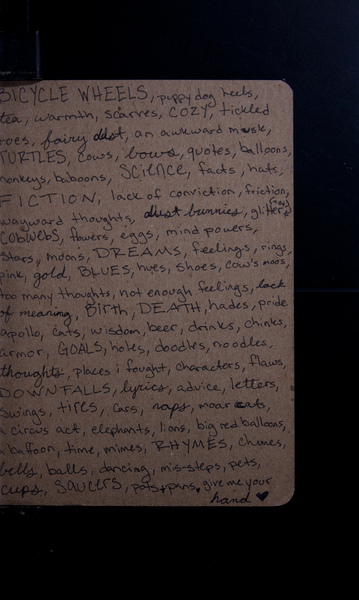 BICYCLE WHEELS, puppy dog heels,
tea, warmth, scarves, COZY, tickled
toes, fairy dust, an awkward musk,
TURTLES, cows, bows, quotes, balloons,
monkeys, baboons, SCIENCE, facts, hats,
FICTION, lack of conviction, friction,
wayward thoughts, dust bunnies, glitter
COBWEBS, flowers, eggs, mind powers,
Stars, moons, DREAMS, feelings, rings,
pink, gold, BLUES, hues, shoes, cow's moos,
too many thoughts, not enough feelings, lack
of meaning, BIRTH, DEATH, hades, pride
apollo, cats, wisdom, beer, drinks, chinks,
armor, GOALS, holes, doodles, noodles,
thoughts, places i fought, characters, flaws,
DOWNFALLS, lyrics, advice, letters,
swings, tires, cars, naps, moar cats,
a circus act, elephants, lions, big red balloons,
a baffoon, time, mimes, RHYMES, chimes,
bells, balls, dancing, mis-steps, pets,
cups, SAUCERS, pots + pans, give me your
hand ♥